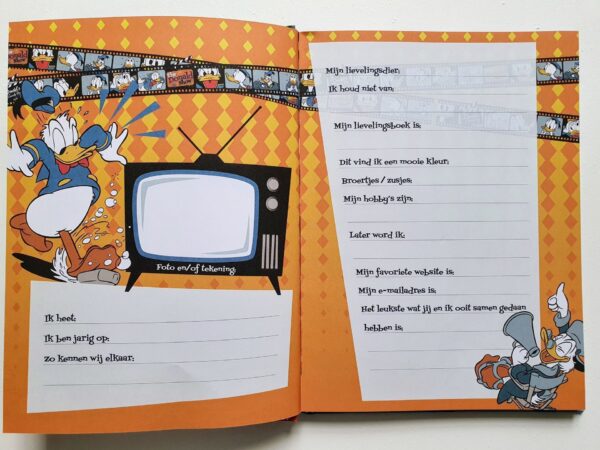 Foto en/of tekening:
Ik heet:
Ik ben jarig op:
zo kennen wij elkaar:
Mijn lievelingsdier:
Ik houd niet van:
Mijn lievelingsboek is:
Dit vind ik een mooie kleur:
Broertjes / zusjes:
Mijn hobby's zijn:
Later word ik:
Mijn favoriete website is:
Mijn e-mailadres is:
Het leukste wat jij en ik ooit samen gedaan
hebben is: